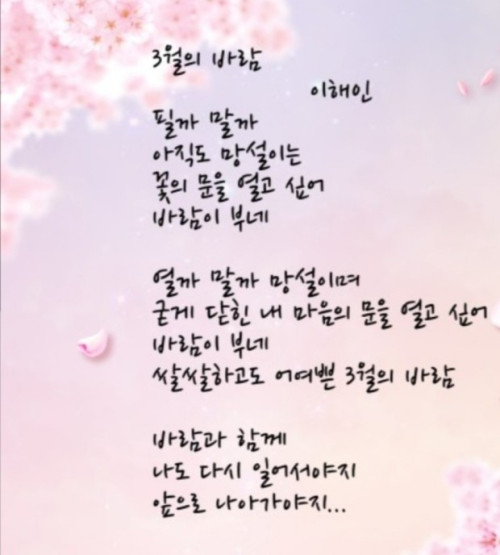 3월의 바람
이해인
필까 말까
아직도 망설이는
꽃의 문을 열고 싶어
바람이 부네
열까 말까 망설이며
굳게 닫힌 내 마음의 문을 열고 싶어
바람이 부네
쌀쌀하고도 어여쁜 3월의 바람
바람과 함께
나도 다시 일어서야지
앞으로 나아가야지...